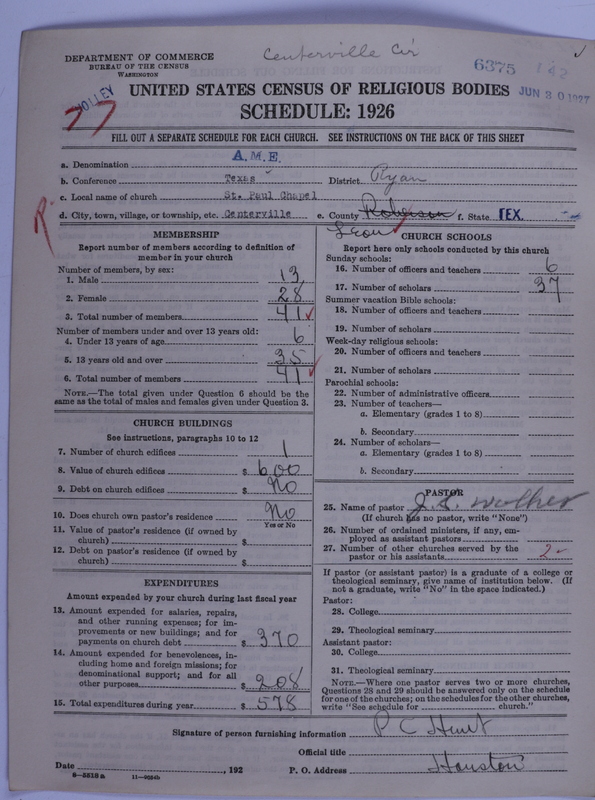 Centerville Cir
DEPARTMENT OF COMMERCE
BUREAU OF THE CENSUS
WASHINGTON
6375 142
HOLLEY
77
UNITED STATES CENSUS OF RELIGIOUS BODIES
JUN 20 1927
SCHEDULE: 1926
FILL OUT A SEPARATE SCHEDULE FOR EACH CHURCH. SEE INSTRUCTIONS ON THE BACK OF THIS SHEET
a. Denomination A.M.E.
b. Conference Texas District Ryan
c. Local name of church St. Paul Chapel
d. City, town, village, or township, etc. Centerville e. County Roberson f. State TEX.
R
Leon
MEMBERSHIP
Report number of members according to definition of
member in your church
Number of members, by sex:
1. Male 13
2. Female 28
3. Total number of members 41
Number of members under and over 13 years old:
4. Under 13 years of age 6
5. 13 years old and over 35
6. Total number of members 41
NOTE.—The total given under Question 6 should be the
same as the total of males and females given under Question 3.
CHURCH BUILDINGS
See instructions, paragraphs 10 to 12
7. Number of church edifices 1
8. Value of church edifices $ 600
9. Debt on church edifices $ No
10. Does church own pastor's residence No
Yes or No
11. Value of pastor's residence (if owned by
church) $
12. Debt on pastor's residence (if owned by
church) $
EXPENDITURES
Amount expended by your church during last fiscal year
13. Amount expended for salaries, repairs,
and other running expenses; for im-
provements or new buildings; and for
payments on church debt $ 370
14. Amount expended for benevolences, in-
cluding home and foreign missions; for
denominational support; and for all
other purposes $ 208
15. Total expenditures during year $ 578
CHURCH SCHOOLS
Report here only schools conducted by this church
Sunday schools:
16. Number of officers and teachers 6
17. Number of scholars 37
Summer vacation Bible schools:
18. Number of officers and teachers
19. Number of scholars
Week-day religious schools:
20. Number of officers and teachers
21. Number of scholars
Parochial schools:
22. Number of administrative officers
23. Number of teachers—
a. Elementary (grades 1 to 8)
b. Secondary
24. Number of scholars—
a. Elementary (grades 1 to 8)
b. Secondary
PASTOR
25. Name of pastor J. S. Walker
(If church has no pastor, write "None")
26. Number of ordained ministers, if any, em-
ployed as assistant pastors
27. Number of other churches served by the
pastor or his assistants 2
If pastor (or assistant pastor) is a graduate of a college or
theological seminary, give name of institution below. (If
not a graduate, write "No" in the space indicated.)
Pastor:
28. College
29. Theological seminary
Assistant pastor:
30. College
31. Theological seminary
NOTE.—Where one pastor serves two or more churches,
Questions 28 and 29 should be answered only on the schedule
for one of the churches; on the schedules for the other churches,
write "See schedule for church."
Signature of person furnishing information P C Hunt
Official title
Date , 192 P. O. Address Houston
8—5518 a 11—9054b